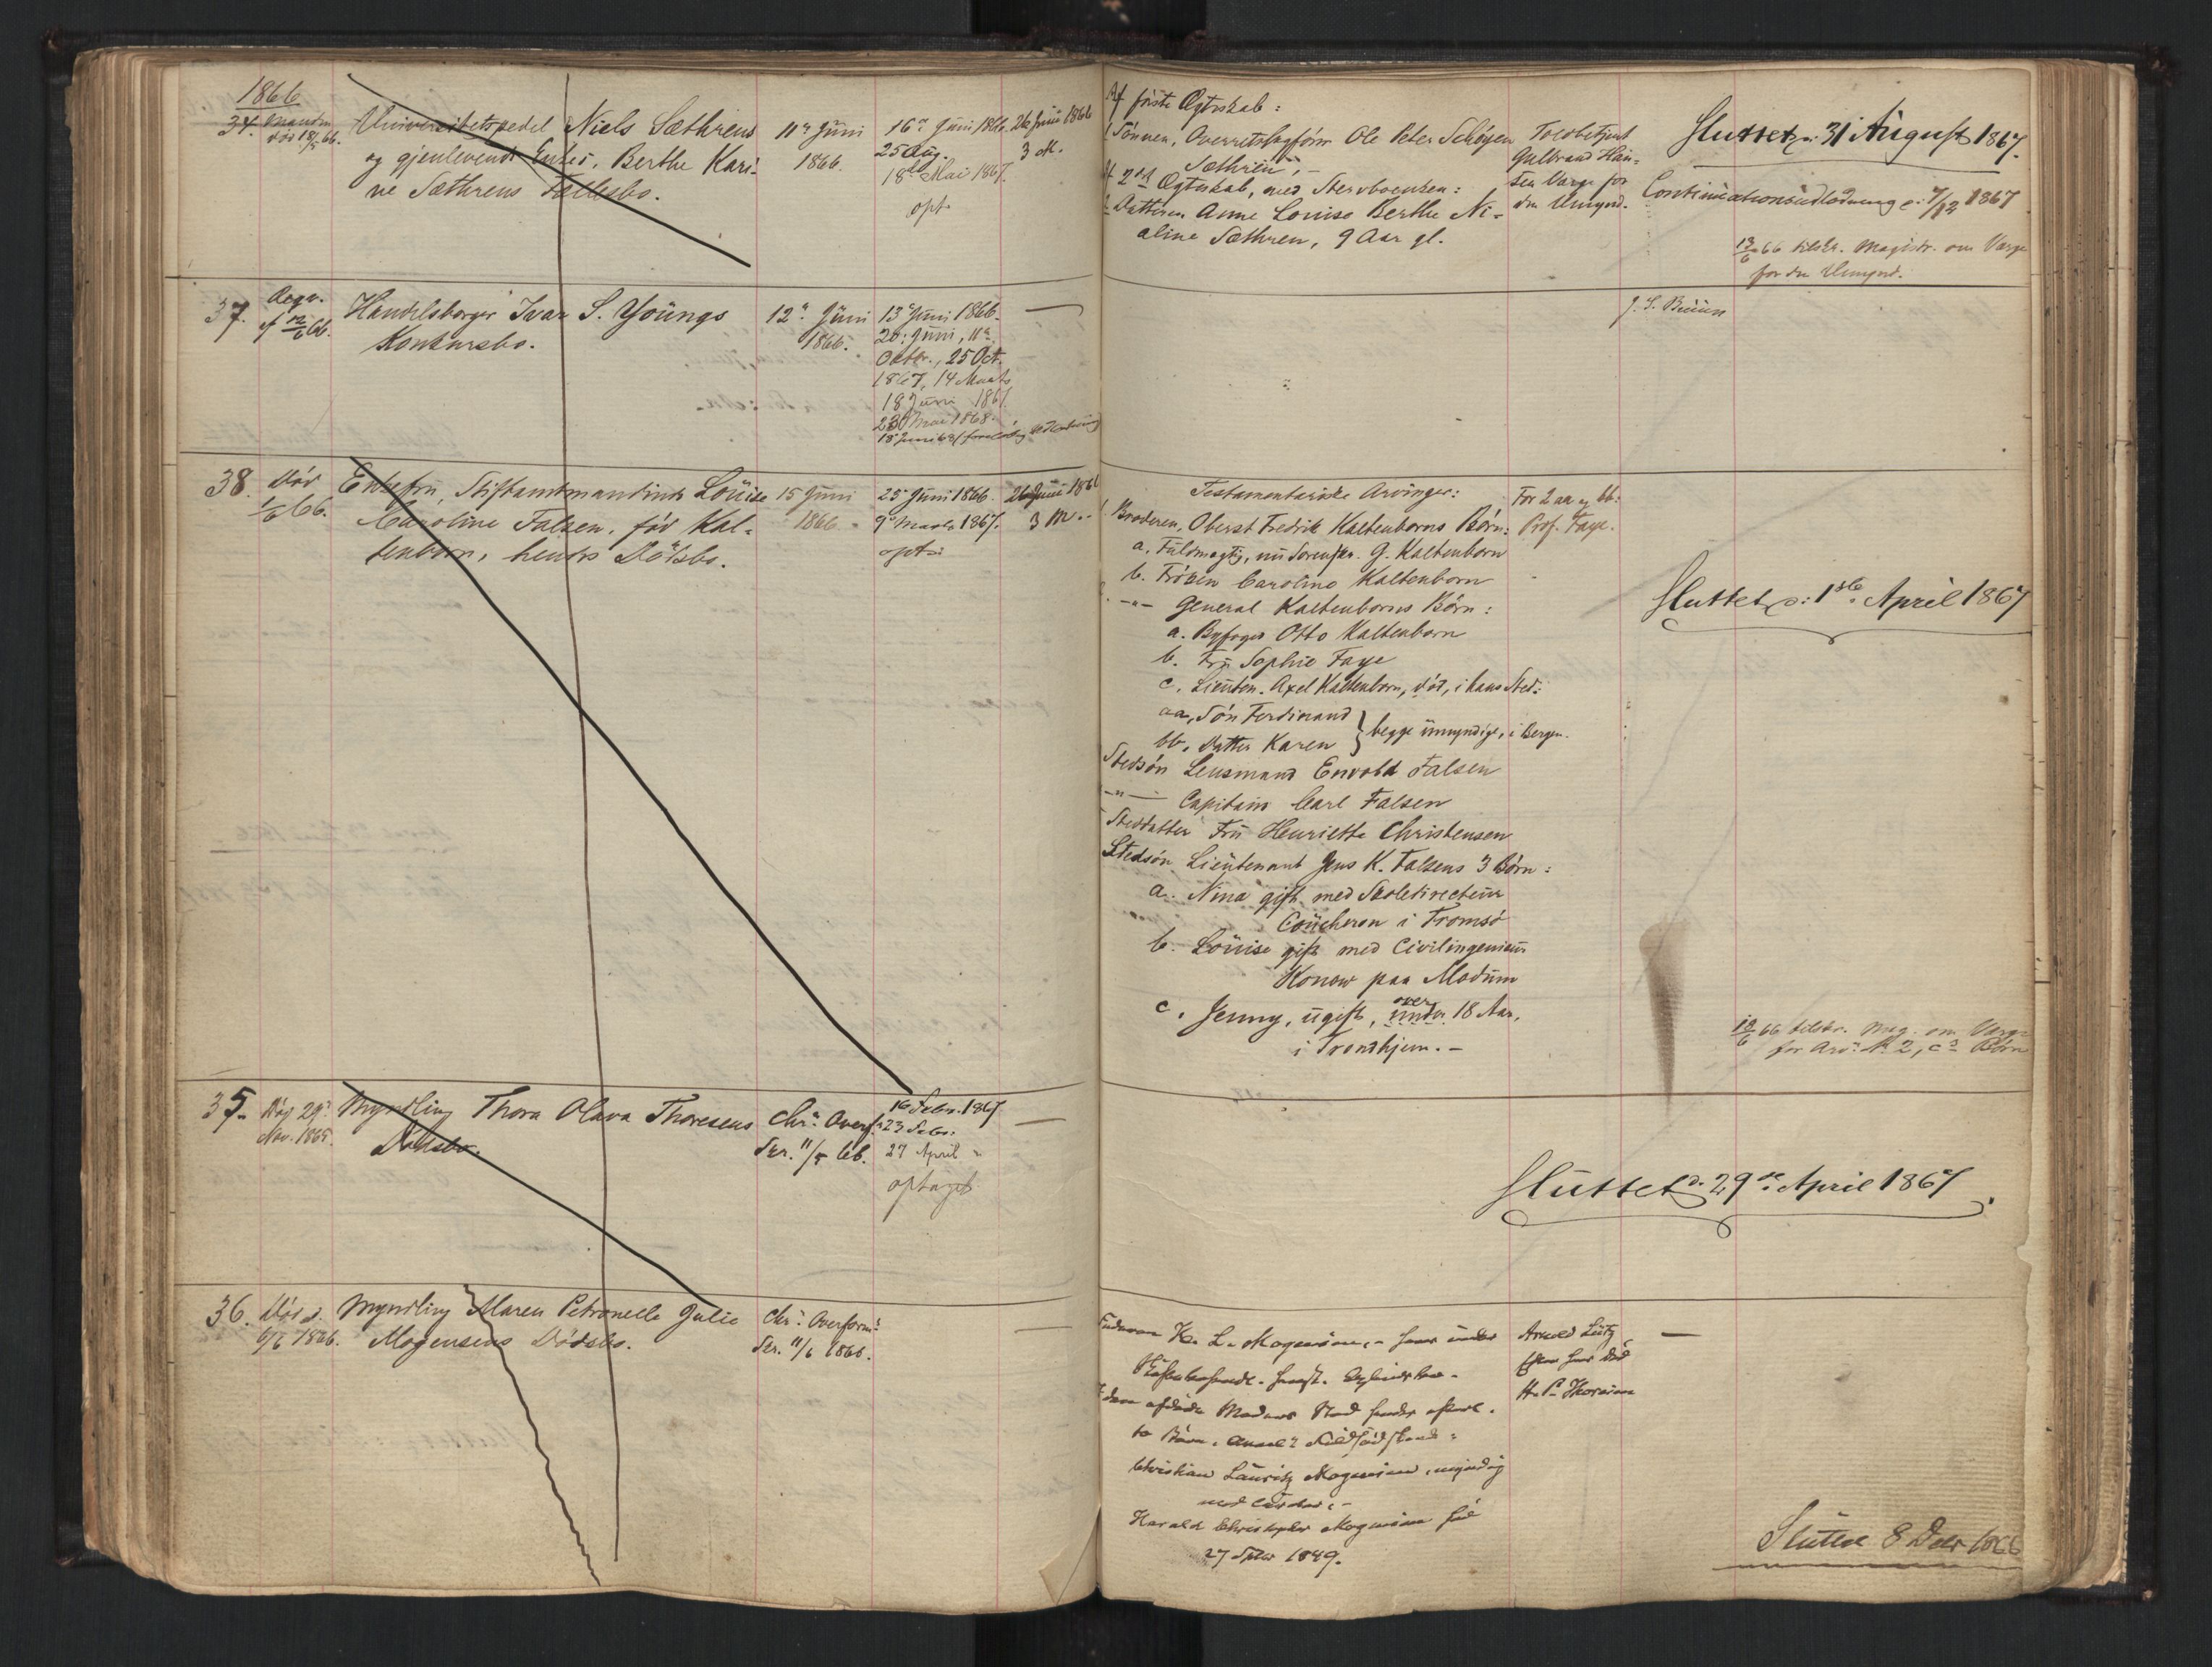 1866
34. Manden
død 18/5 66.
Universitetspedel Niels Sæthrens
og gjenlevende Enkes, Berthe Kari-
ne Sæthrens Fællesbo.
11te Juni
1866.
16de Juni 1866.
25 Aug.
18de Mai 1867.
opt.
26 Juni 1866
3 M.
Af første Ægteskab:
1 Sønnen, Overretssagfører Ole Peter Schøyen
Sæthren, –
Af 2det Ægteskab, med Stervboenken:
2 Datteren Anne Louise Berthe Ni-
aline Sæthren, 9 Aar gl.
Toldbetjent
Gulbrand Han-
sen Værge for
den Umynd.
Sluttet d: 31 August 1867.
Continuationsudlodning d: 7/12 1867
13/6 66 tilskr. Magistr. om Værge
for den Umynd.
37.
Begr.
af 12/6 66.
Handelsborger Ivar S. Youngs
Konkursbo.
12te Juni
1866.
13de Juni 1866.
20: Juni, 11te
Octbr., 25 Oct.
1867, 14 Marts
18 Juni 1867.
23 Mai 1868.
18 Juni 68 (foreløbig Udlodning)
J. S. Bruun
38.
Død
1/6 66.
Enkefru, Stiftamtmandinde Louise
Caroline Falsen, fød Kal-
tenborn, hendes Dødsbo.
15 Juni
1866.
25 Juni 1866.
9de Marts 1867.
opt:
26 Juni 1866
3 M.
Testamentariske Arvinger:
1. Broderen, Oberst Fredrik Kaltenborns Børn:
a. Fuldmægtig, nu Sorenskr. G. Kaltenborn
b. Frøken Caroline Kaltenborn
2. –"– General Kaltenborns Børn:
a. Byfoged Otto Kaltenborn
b. Fru Sophie Faye
c. Lieuten. Axel Kaltenborn, død, i hans Sted:
aa, Søn Ferdinand
bb, Datter Karen } begge umyndige, i Bergen.
Stedsøn Lensmand Envold Falsen
–"– Capitain Carl Falsen
Steddatter Fru Henriette Christensen
Stedsøn Lieutenant Jens K. Falsens 3 Børn:
a. Nina gift med Skoledirecteur
Coucheron i Tromsø
b. Louise gift med Civilingenieur
Konow paa Modum
c. Jenny, ugift, under over 18 Aar,
i Trondhjem. –
For 2 aa og bb:
Prof. Faye.
Sluttet d: 1ste April 1867
13/6 66 tilskr. Mag. om Værge
for Arv: No 2, cs Børn
35.
Død 29de
Nov. 1865.
Myndling Thora Olava Thoresens
Dødsbo.
Chra Overf.
Skr. 11/5 66.
16 Febr. 1867
23 Febr.
27 April "
optaget
Sluttet d. 29de April 1867.
36.
Død d.
6/6 1866.
Myndling Maren Petronelle Julie
Mogensens Dødsbo.
Chra Overform:
Skr. 11/6 1866.
Faderen H. L. Mogensen, –
I den afdøde Moders Sted hendes efterl.
te Børn,
Christian Lauritz Mogensen, myndig
med Curator, –
Harald Christopher Mogensen fød
27 Septbr 1849.
Arnold Lutz
efter hans Død
H. P. Thoresen
Sluttet 8 Decbr 1866